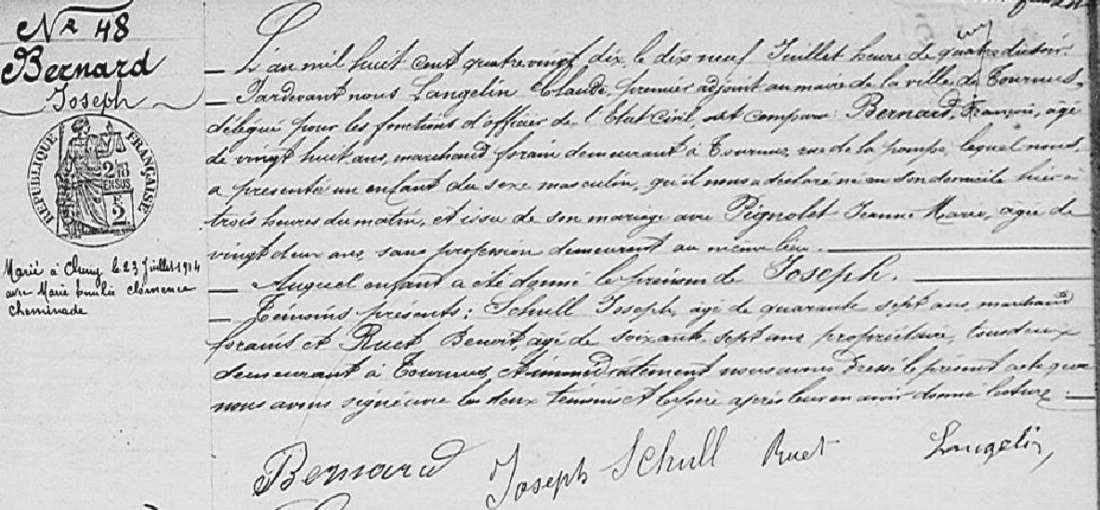 Nr 48
Bernard
Joseph
RÉPUBLIQUE FRANÇAISE
2 1/10
EN SUS
F
2
Marié à Cluny le 23 Juillet 1914
avec Marie Emilie Clémence
Cheminade
L'an mil huit cent quatre vingt dix, le dix neuf Juillet heure de quatre du soir.
Pardevant nous Langelin Claude, premier adjoint au maire de la ville de Tournus,
délégué pour les fonctions d'officier de l'Etat Civil, est comparu Bernard, François, âgé
de vingt huit ans, marchand forain demeurant à Tournus, rue de la pompe, lequel nous
a présenté un enfant du sexe masculin, qu'il nous a déclaré né en son domicile hier à
trois heures du matin, et issu de son mariage avec Pignolet Jeanne Marie, âgée de
vingt deux ans, sans profession demeurant au même lieu.
Auquel enfant a été donné le prénom de Joseph.
Témoins présents: Schull Joseph, âgé de quarante sept ans, marchand
forains et Ruet Benoit, âgé de soixante sept ans propriétaire, tous deux
demeurant à Tournus, et immédiatement nous avons dressé le présent acte que
nous avons signé avec les deux témoins et le père après leur en avoir donné lecture.
Bernard Joseph Schull Ruet Langelin